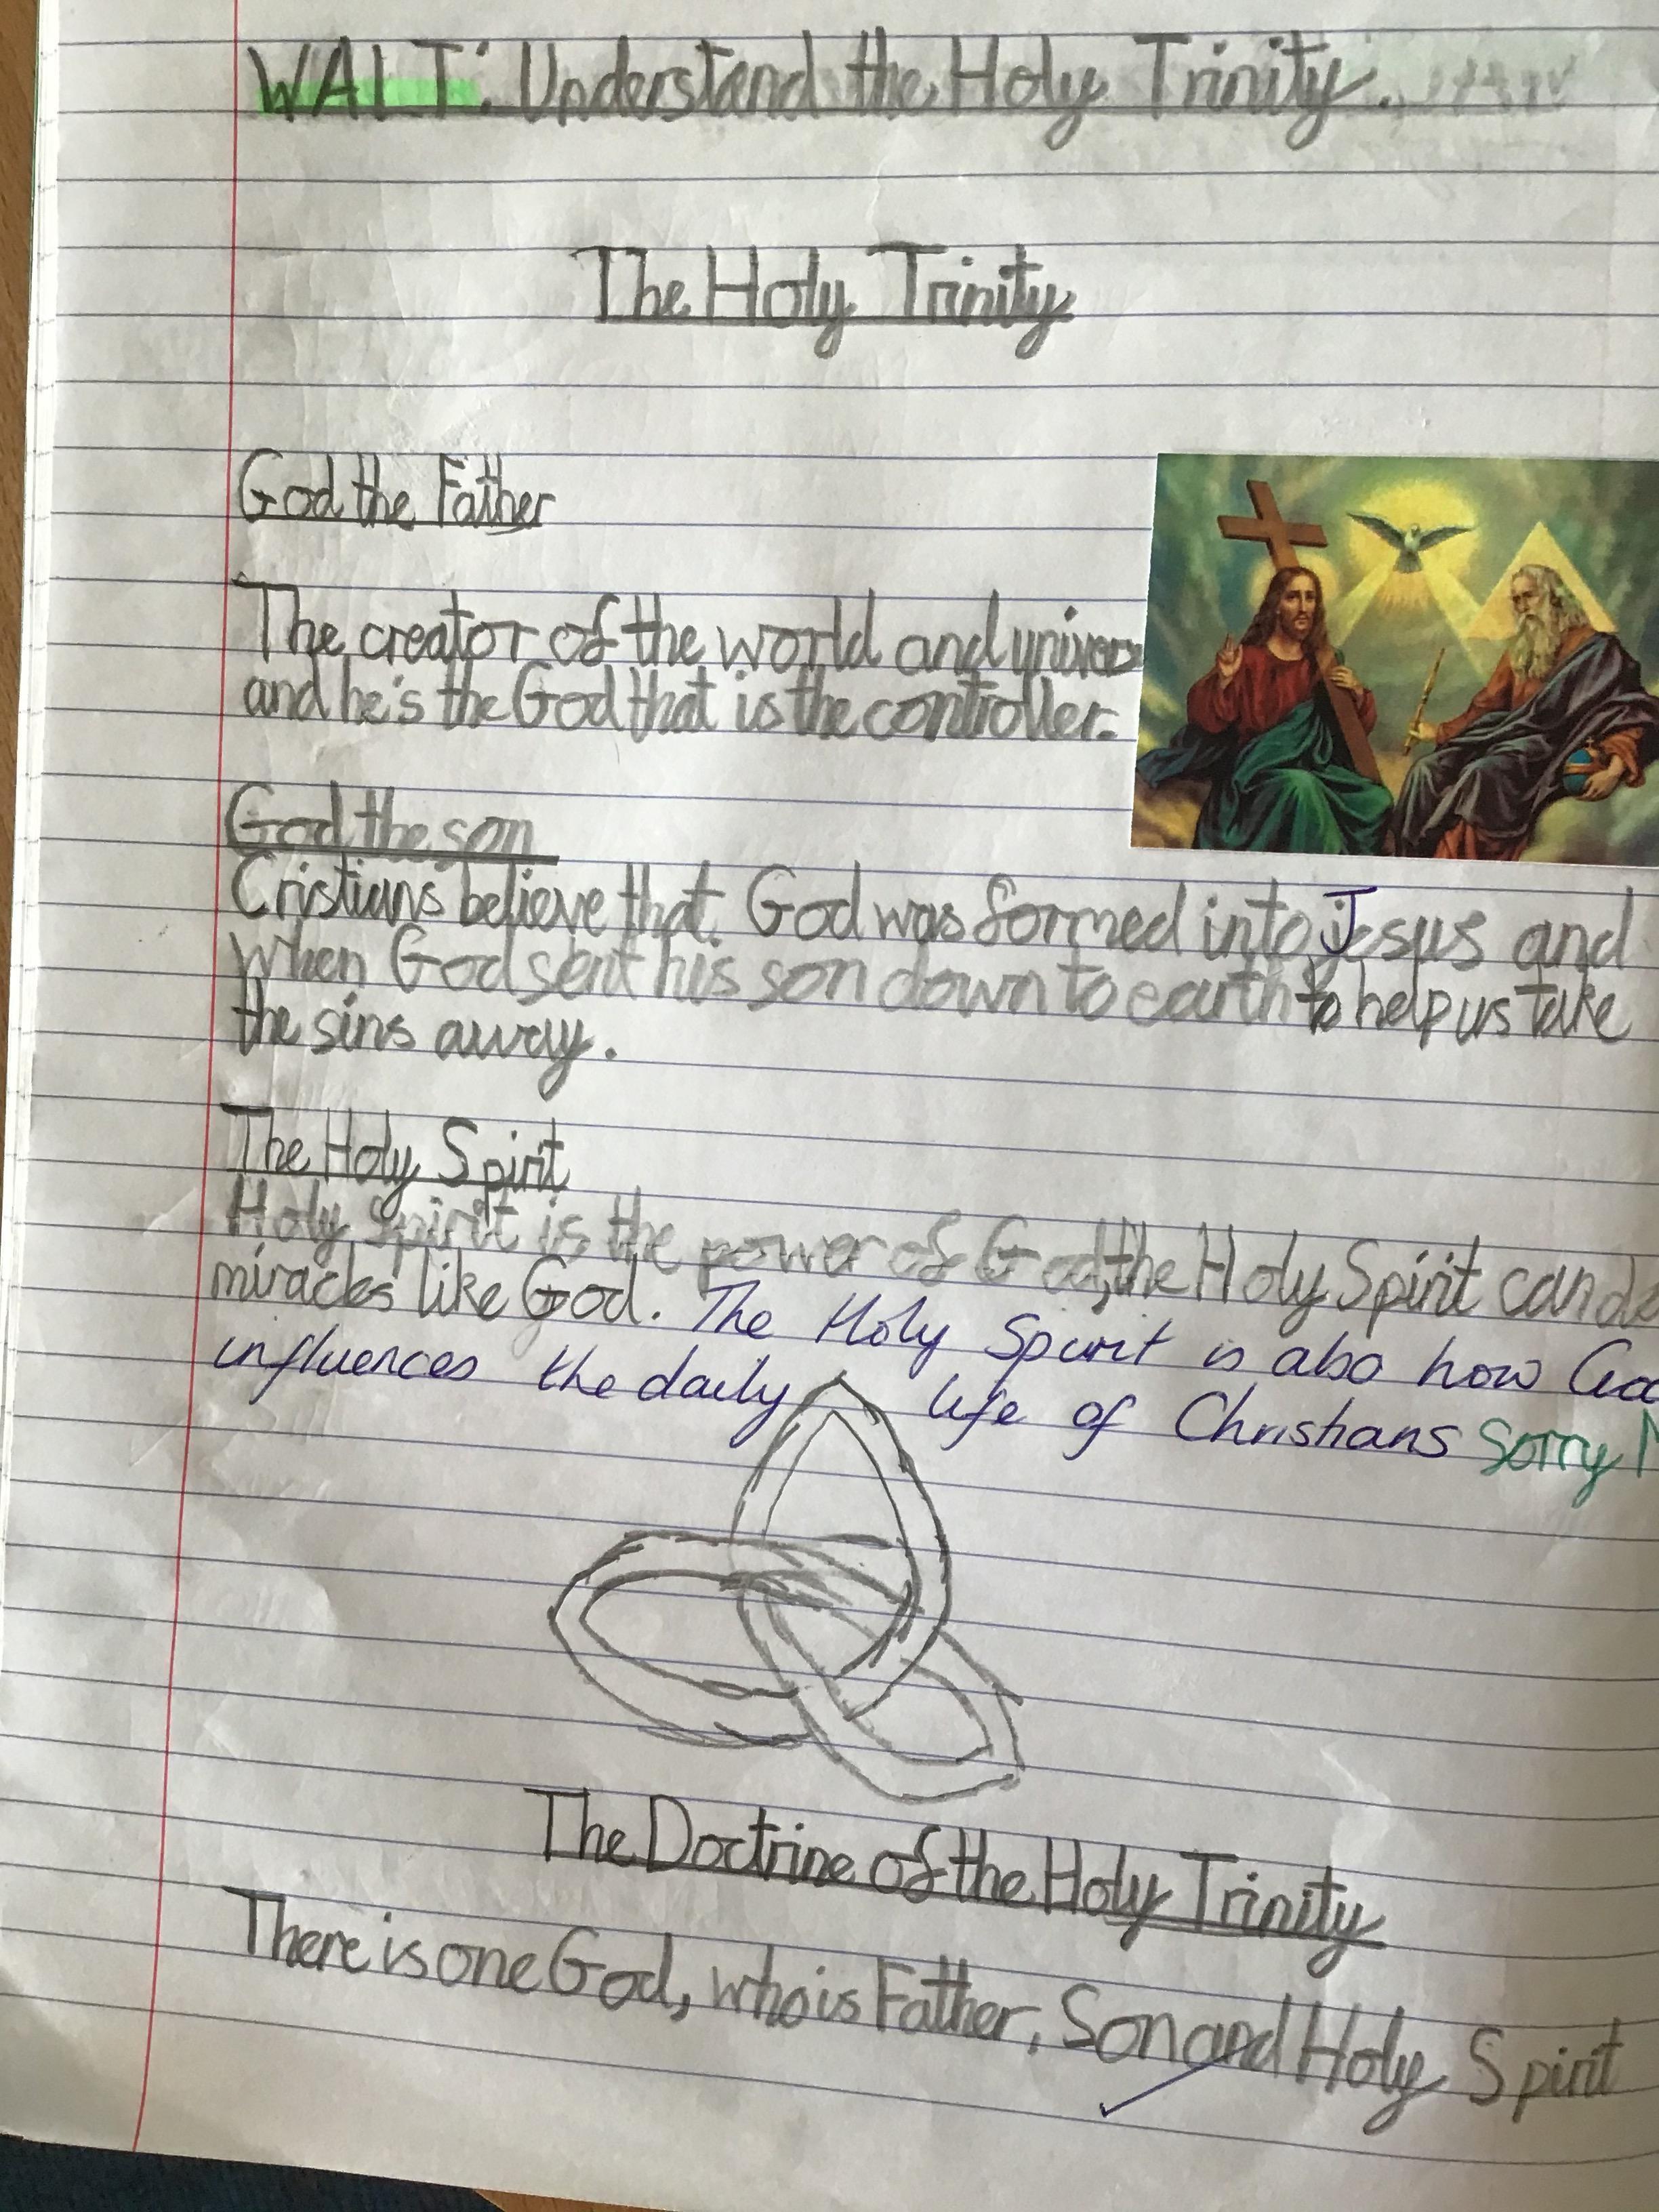 WALT: Understand the Holy Trinity.
The Holy Trinity
God the Father
The creator of the world and univers
and he's the God that is the controller.
God the son
Cristians believe that God was formed into Jesus and
when God sent his son down to earth to help us take
the sins away.
The Holy Spirit
Holy spirit is the power of God, the Holy Spirit can do
miracles like God. The Holy Spirit is also how God
influences the daily life of Christians Sorry M
The Doctrine of the Holy Trinity
There is one God, who is Father, Son and Holy Spirit